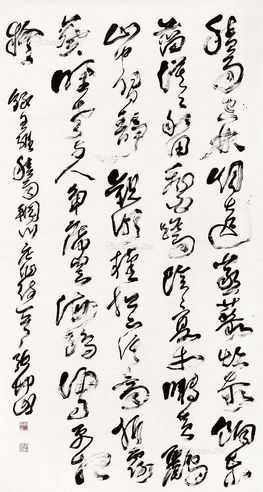 積雨空林烟火遲蒸藜炊黍餉東
菑漠漠水田飛白鷺陰陰夏木囀黃鸝
山中習靜觀朝槿松下清齋折露
葵野老與人爭席罷海鷗何事更相
疑
錄王維積雨輞川庄作詩一首